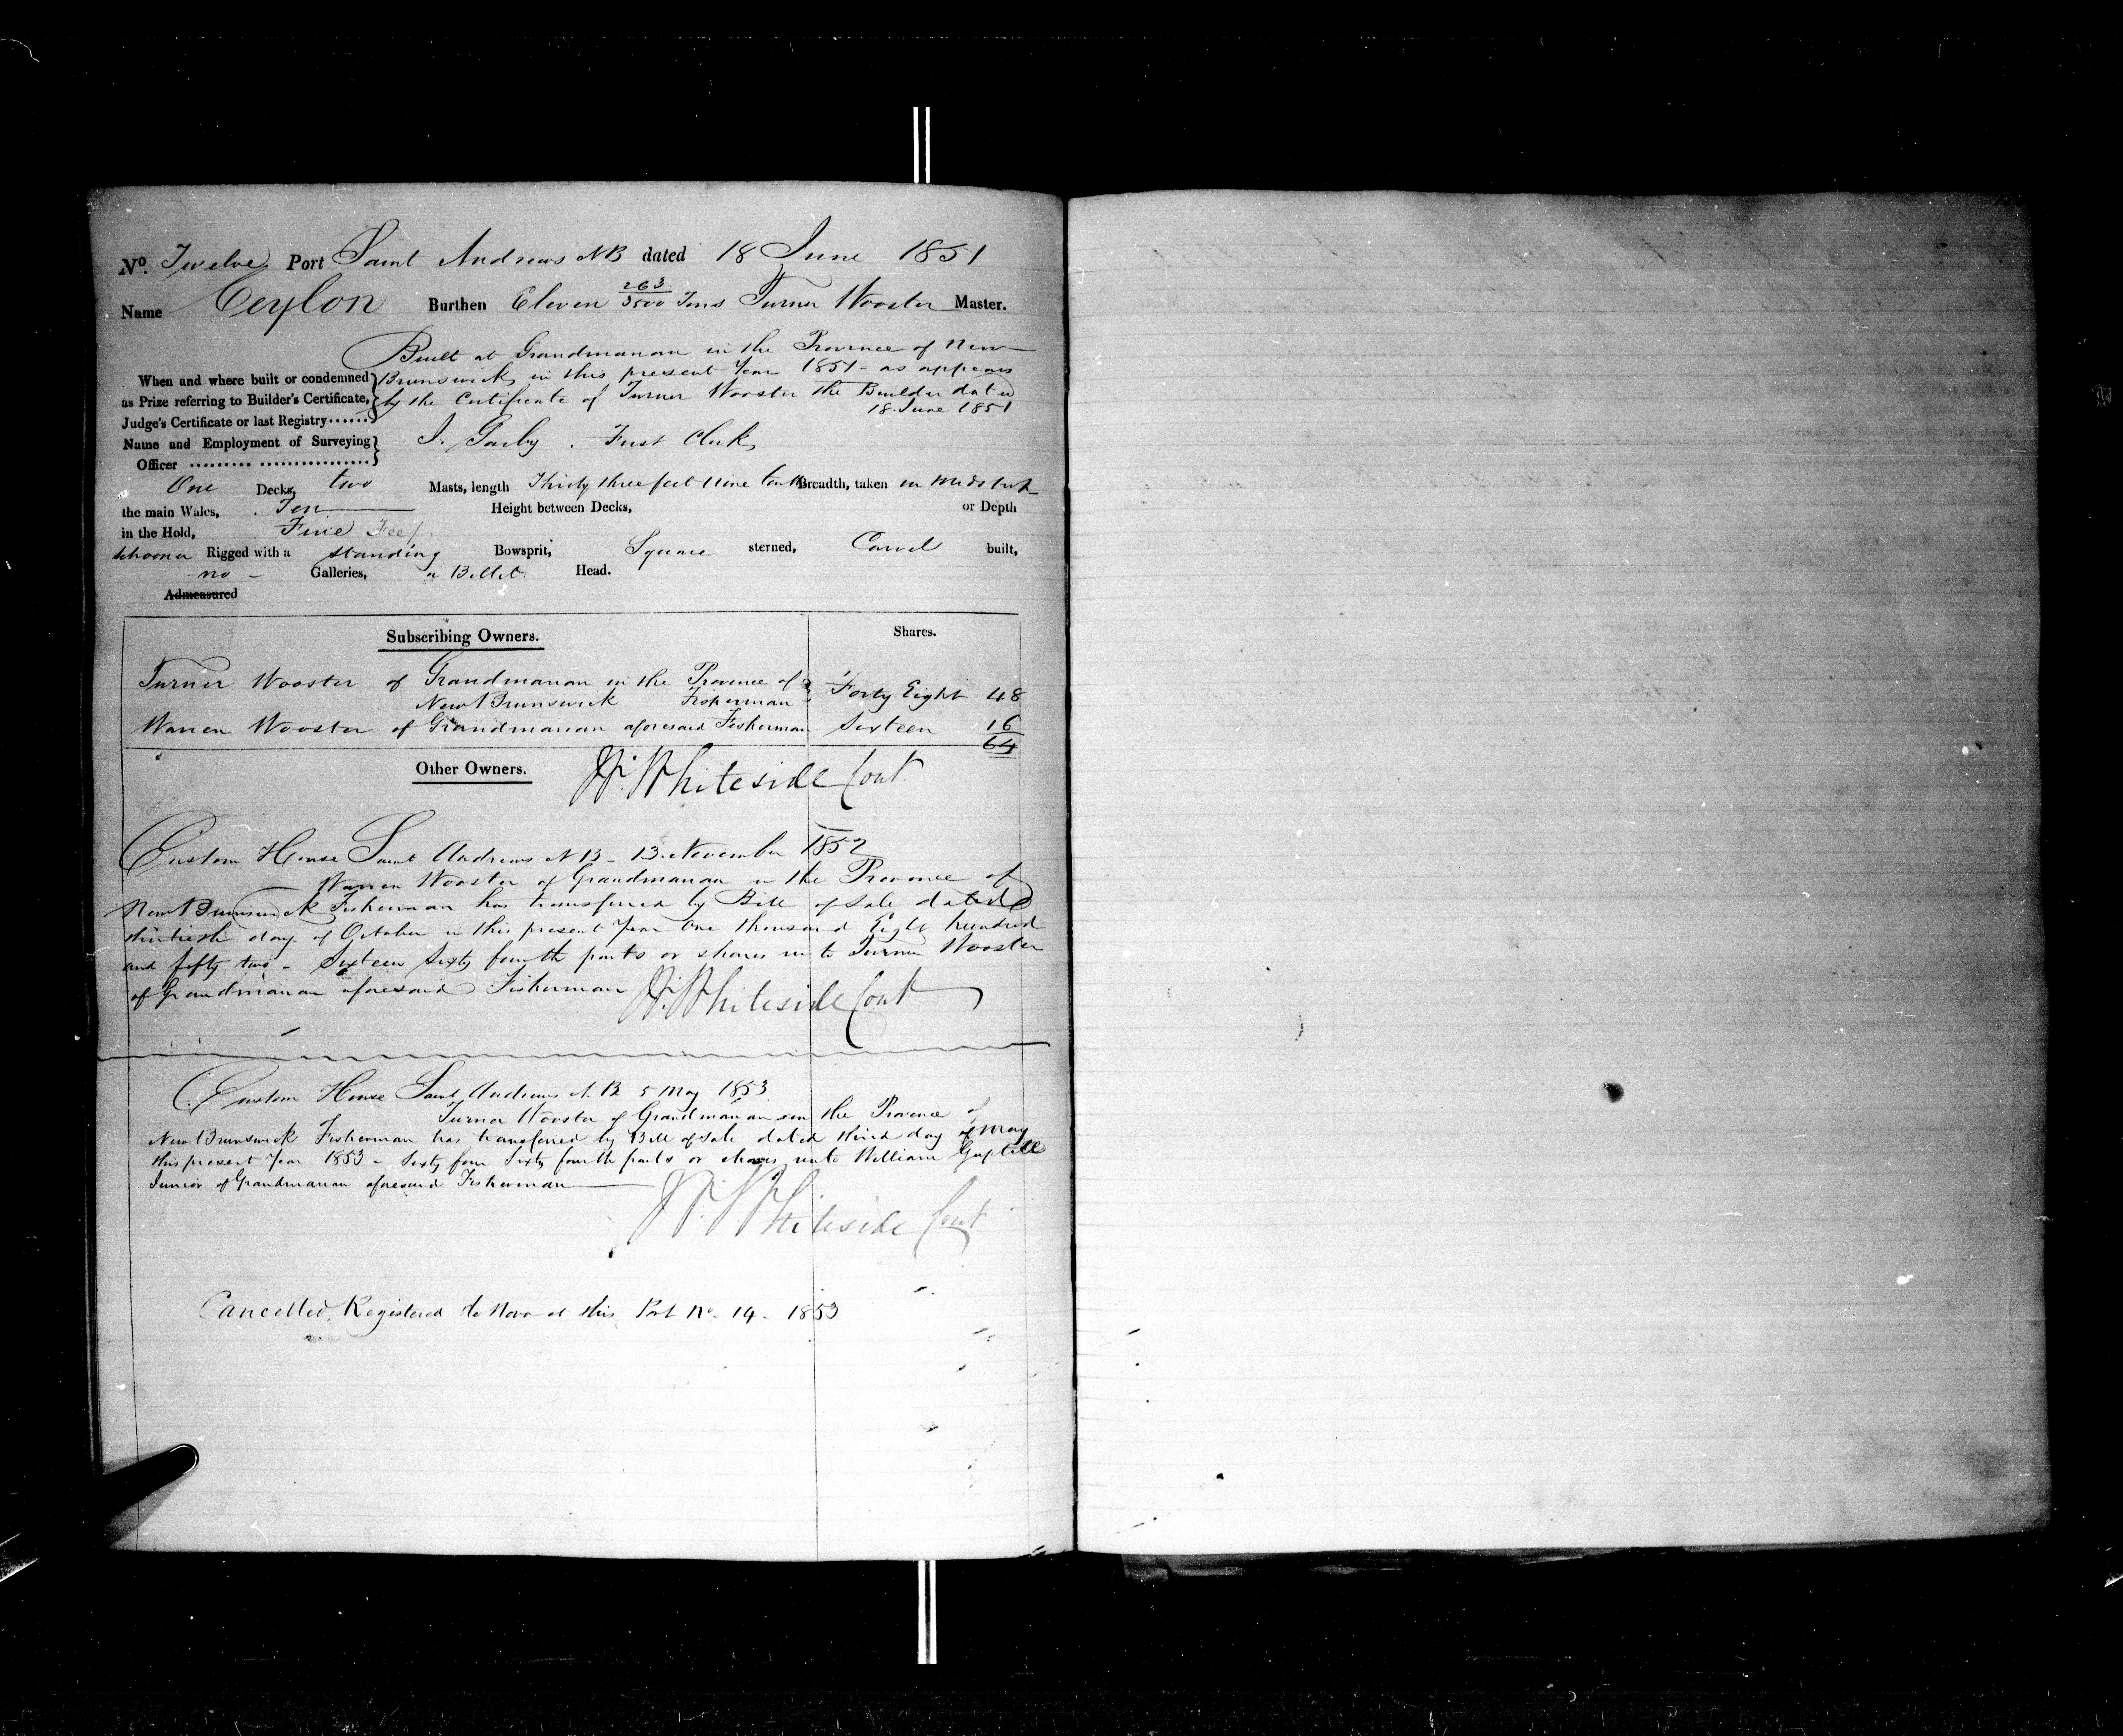 No. Twelve Port Saint Andrews NB dated 18 June 1851
Name Ceylon Burthen Eleven 263/3500 Tons Turner Wooster Master.
Built at Grandmanan in the Province of New
When and where built or condemned Brunswick in this present Year 1851 - as appears
as Prize referring to Builder's Certificate, by the Certificate of Turner Wooster the Builder dated
Judge's Certificate or last Registry...... 18 June 1851
Name and Employment of Surveying First Clerk
Officer ......... ................
One Decks, two Masts, length Thirty three feet nine tenths Breadth, taken in Midships
the main Wales, Ten Height between Decks, or Depth
in the Hold, Five Feet.
Schooner Rigged with a standing Bowsprit, Square sterned, Carvel built,
no - Galleries, a Billet Head.
Admeasured
Subscribing Owners. Shares.
Turner Wooster of Grandmanan in the Province of
New Brunswick Fisherman Forty Eight 48
Warren Wooster of Grandmanan aforesaid Fisherman Sixteen 16
64
Other Owners. Whiteside Cont
Custom House Saint Andrews NB - 13 November 1852
Warren Wooster of Grandmanan in the Province of
New Brunswick Fisherman has transferred by Bill of Sale dated
thirtieth day of October in this present Year One thousand Eight hundred
and fifty two - Sixteen Sixty fourth parts or shares unto Turner Wooster
of Grandmanan aforesaid Fisherman Whiteside Cont
Custom House Saint Andrews N.B 5 May 1853
Turner Wooster of Grandmanan in the Province of
New Brunswick Fisherman has transferred by Bill of Sale dated third day of May
this present Year 1853 - Sixty four Sixty fourth parts or shares unto William Guptill
Junior of Grandmanan aforesaid Fisherman
Whiteside Cont
Cancelled, Registered de Novo at this Port No. 14 - 1853